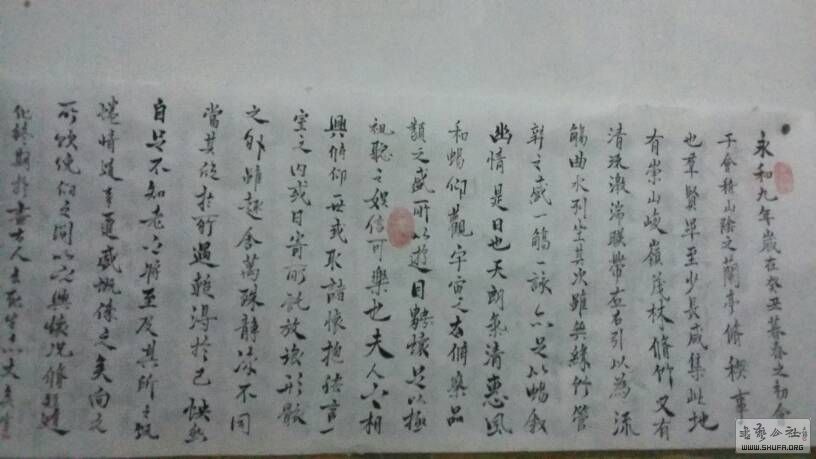 永和九年歲在癸丑暮春之初會
于會稽山陰之蘭亭脩稧事
也羣賢畢至少長咸集此地
有崇山峻嶺茂林脩竹又有
清流激湍暎帶左右引以為流
觴曲水列坐其次雖無絲竹管
弦之盛一觴一詠亦足以暢叙
幽情是日也天朗氣清惠風
和暢仰觀宇宙之大俯察品
類之盛所以遊目騁懷足以極
視聽之娛信可樂也夫人之相
與俯仰一世或取諸懷抱悟言一
室之內或因寄所託放浪形骸
之外雖趣舍萬殊靜躁不同
當其欣於所遇暫得於己怏然
自足不知老之將至及其所之既
惓情隨事遷感慨係之矣向之
所欣俛仰之間以之興懷況脩短隨
化終期於盡古人云死生亦大矣
书艺公社
WWW.SHUFA.ORG